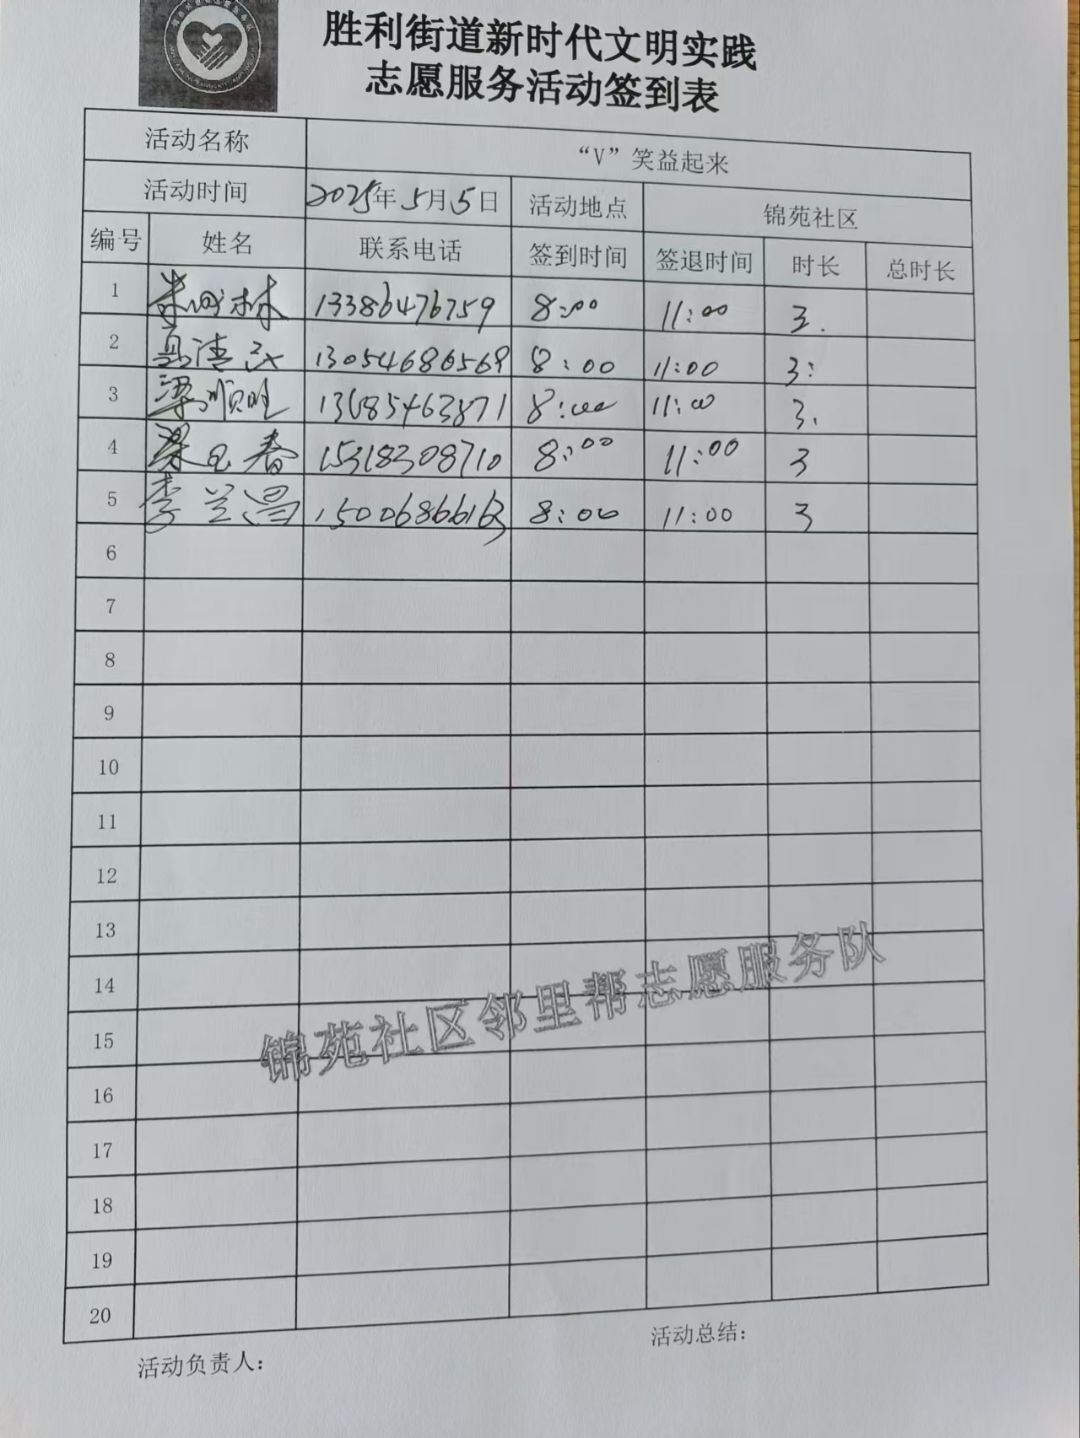 胜利街道新时代文明实践
志愿服务活动签到表
活动名称 “V”笑益起来
活动时间 2025年5月5日 活动地点 锦苑社区
编号 姓名 联系电话 签到时间 签退时间 时长 总时长
1 林 13386476759 8:00 11:00 3.
2 清 13054686569 8:00 11:00 3:
3 梁顺旺 13685463871 8:00 11:00 3.
4 梁春 15318308710 8:00 11:00 3
5 李兰昌 8:00 11:00 3
6
7
8
9
10
11
12
13
14
15
16
17
18
19
20
锦苑社区邻里帮志愿服务队
活动负责人: 活动总结: